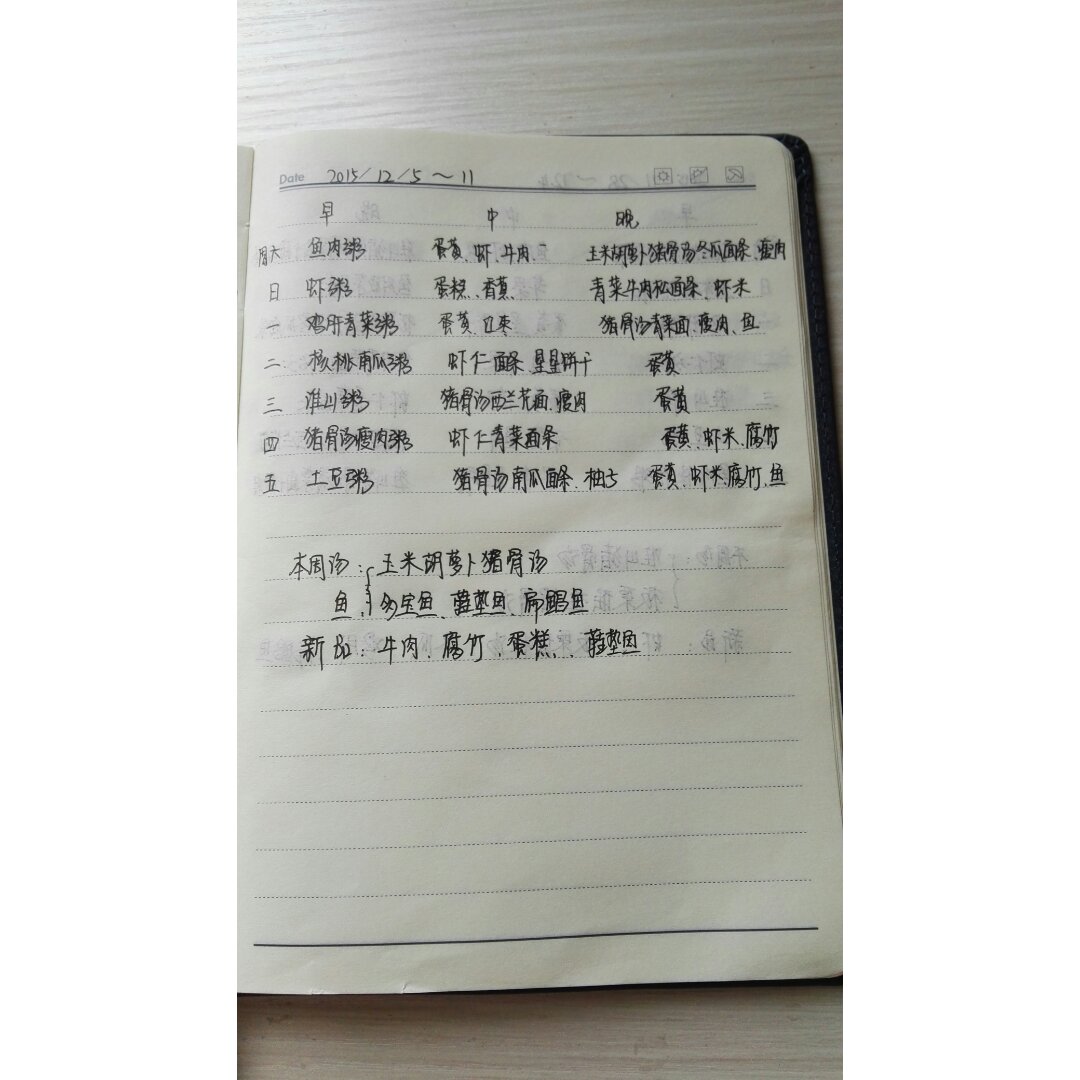 Date 2015/12/5～11
早 中 晚
周六 鱼肉粥 蛋黄、虾、牛肉、 玉米胡萝卜猪骨汤冬瓜面条、瘦肉
日 虾粥 蛋糕、香蕉、 青菜牛肉松面条、虾米
一 鸡肝青菜粥 蛋黄、红枣 猪骨汤青菜面、瘦肉、鱼
二 核桃南瓜粥 虾仁面条、星星饼干 蛋黄
三 淮山粥 猪骨汤西兰花面、瘦肉 蛋黄
四 猪骨汤瘦肉粥 虾仁青菜面条 蛋黄、虾米、腐竹
五 土豆粥 猪骨汤南瓜面条、柚子 蛋黄、虾米、腐竹、鱼
本周汤：玉米胡萝卜猪骨汤
鱼：多宝鱼、鱼、鱼
新品：牛肉、腐竹、蛋糕、鱼